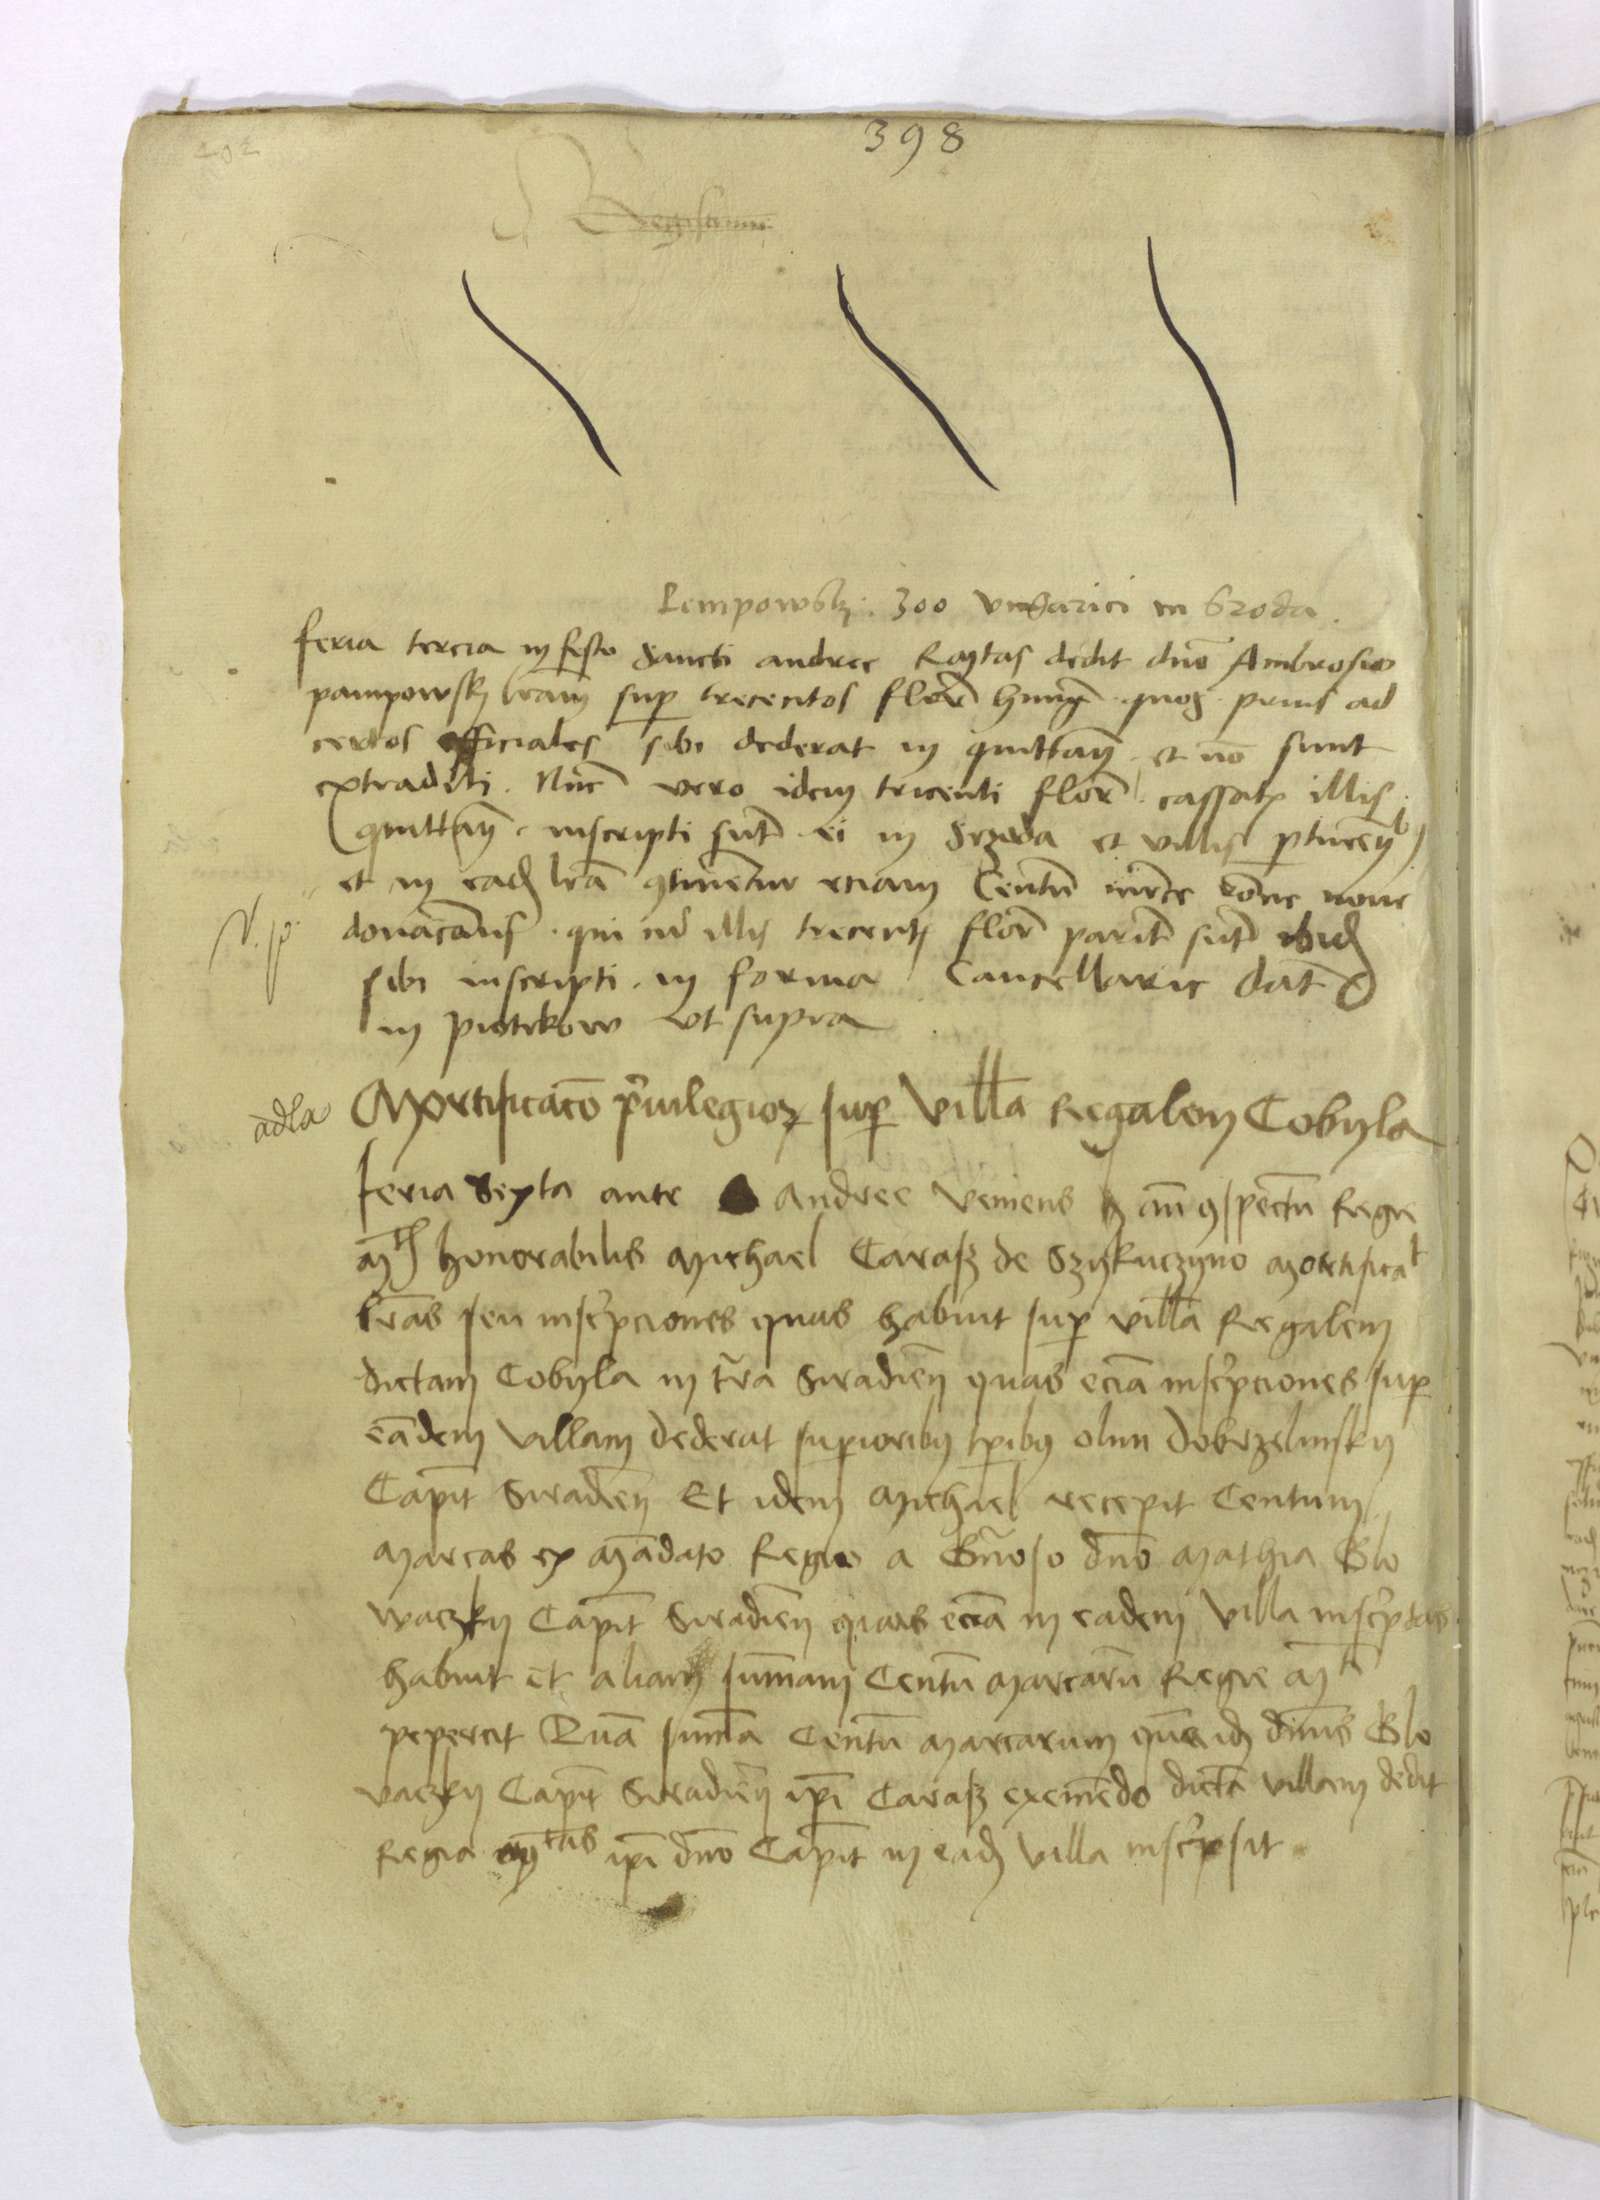 398
202
Regestrum
Pempowsky 300 Ungarici in Sroda.
feria tercia in festo Sancti andree R. mtas dedit dno Ambrosio
pampowsky lram sup trecentos flor hung quos prius ad
certos officiales sibi dederat in quittacy et no sunt
extraditi. Nuc vero idem tricenti flor cassatis illis
quittacy inscripti sut ei in Srzoda et villis ptineny
et in ead lra gtinetur eciam Centu mrce rone noue
donacois qui cu illis trecentis flor parit sut ibid
sibi inscripti in forma Cancellarie dat
in piotrkow vt supra
adla
Mortificaco priuilegior sup villa Regalem Cobyla
feria Sexta ante Andree veniens in gspectu Regie
Mtis honorabilis Michael Carasz de Szykuczyno Mortificat
lras seu inscripciones quas habuit sup villa Regalem
dictam Cobyla in tra Siradien quas ecia inscripciones sup
eadem villam dederat superiorib tpibus olim Dobrzelinsky
Capit Siradien Et idem Michael recepit Centum
Marcas ex Madato Regio a Gnoso dno Mathia Glo
waczky Capit Siradien quas ecia in eadem villa inscriptas
habuit et aliam summam Centu Marcaru Regie Mti
pepercit Qua summa Centu Marcarum qua id dnus Glo
vaczky Capit Siradien ipi Carasz exiemdo dicta villam dedit
Regia Mtas ipi dno Capit in ead villa inscripsit